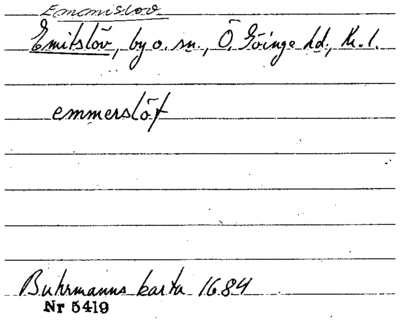 Emmislöv
Emitslöv, by o. sn., Ö. Göinge hd., K. l.
emmerslöf
Buhrmanns karta 1684
Nr 5419